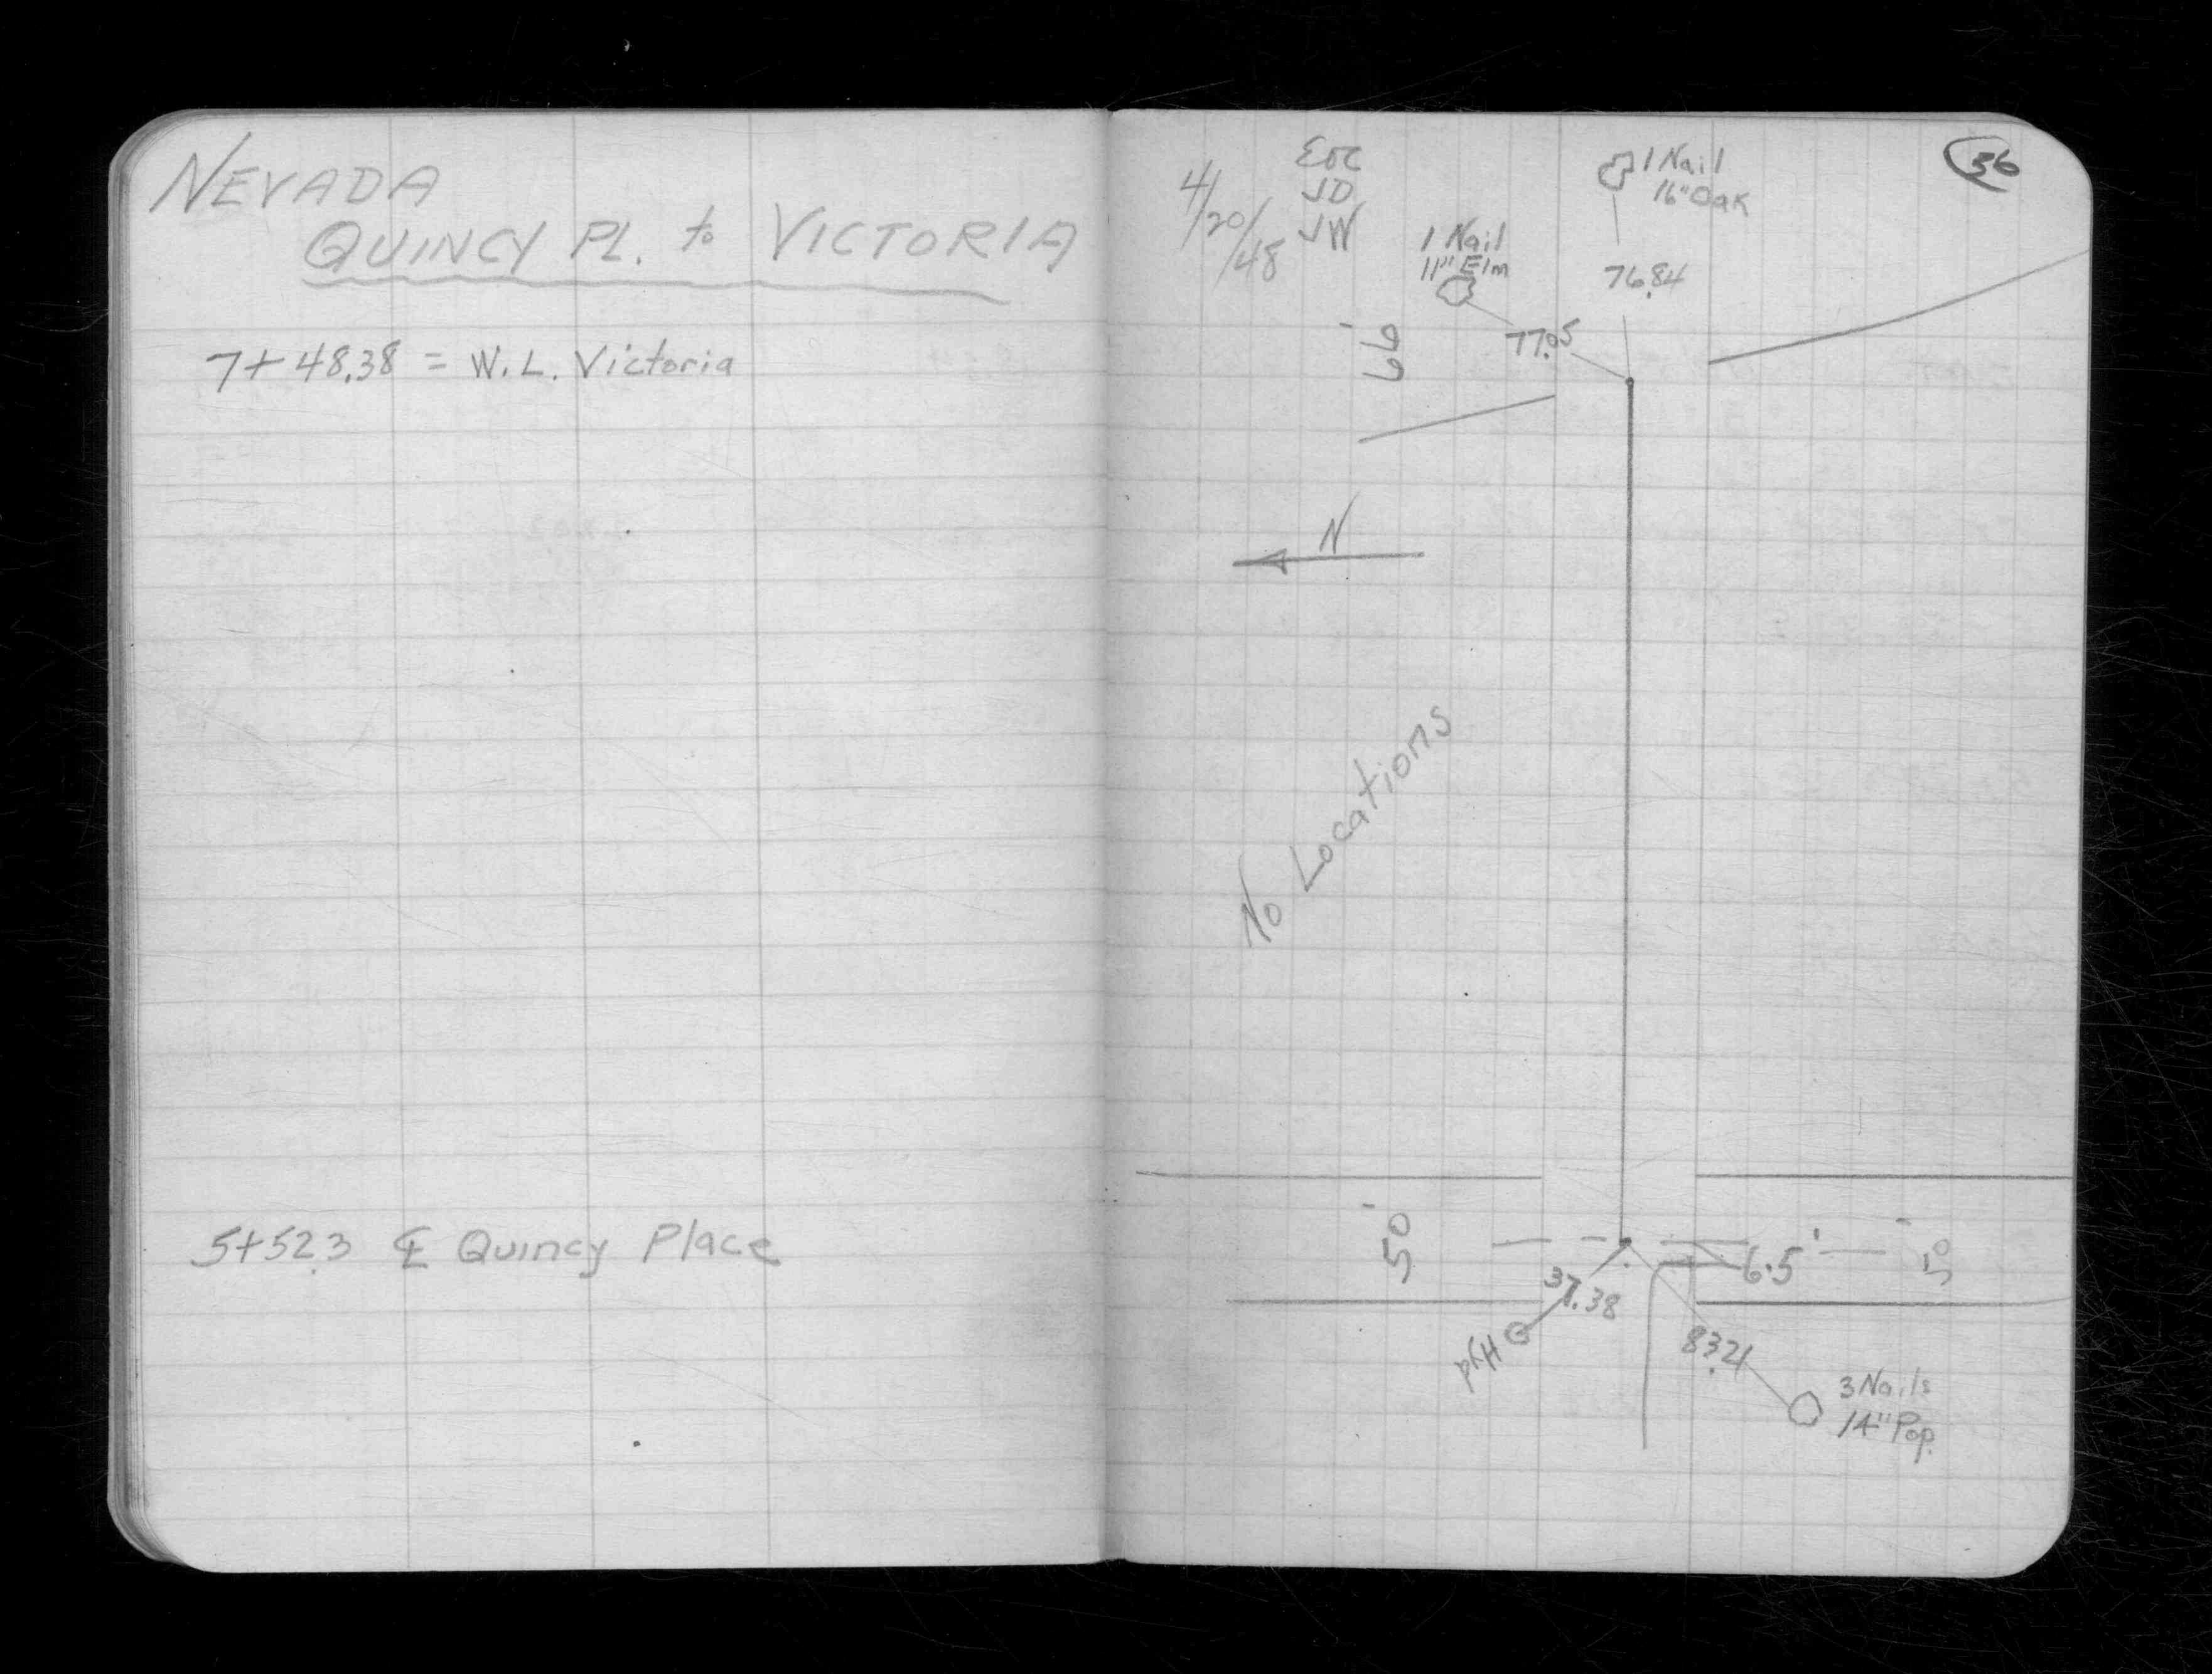 NEVADA
QUINCY PL. to VICTORIA
7+48.38 = W.L. Victoria
5+52.3 ℄ Quincy Place
36
4/20/48
EOC
JD
JW
1 Nail
16" Oak
76.84
1 Nail
11" Elm
77.05
66'
N
No Locations
50'
6.5'
50'
37.38
Hyd
83.21
3 Nails
14" Pop.